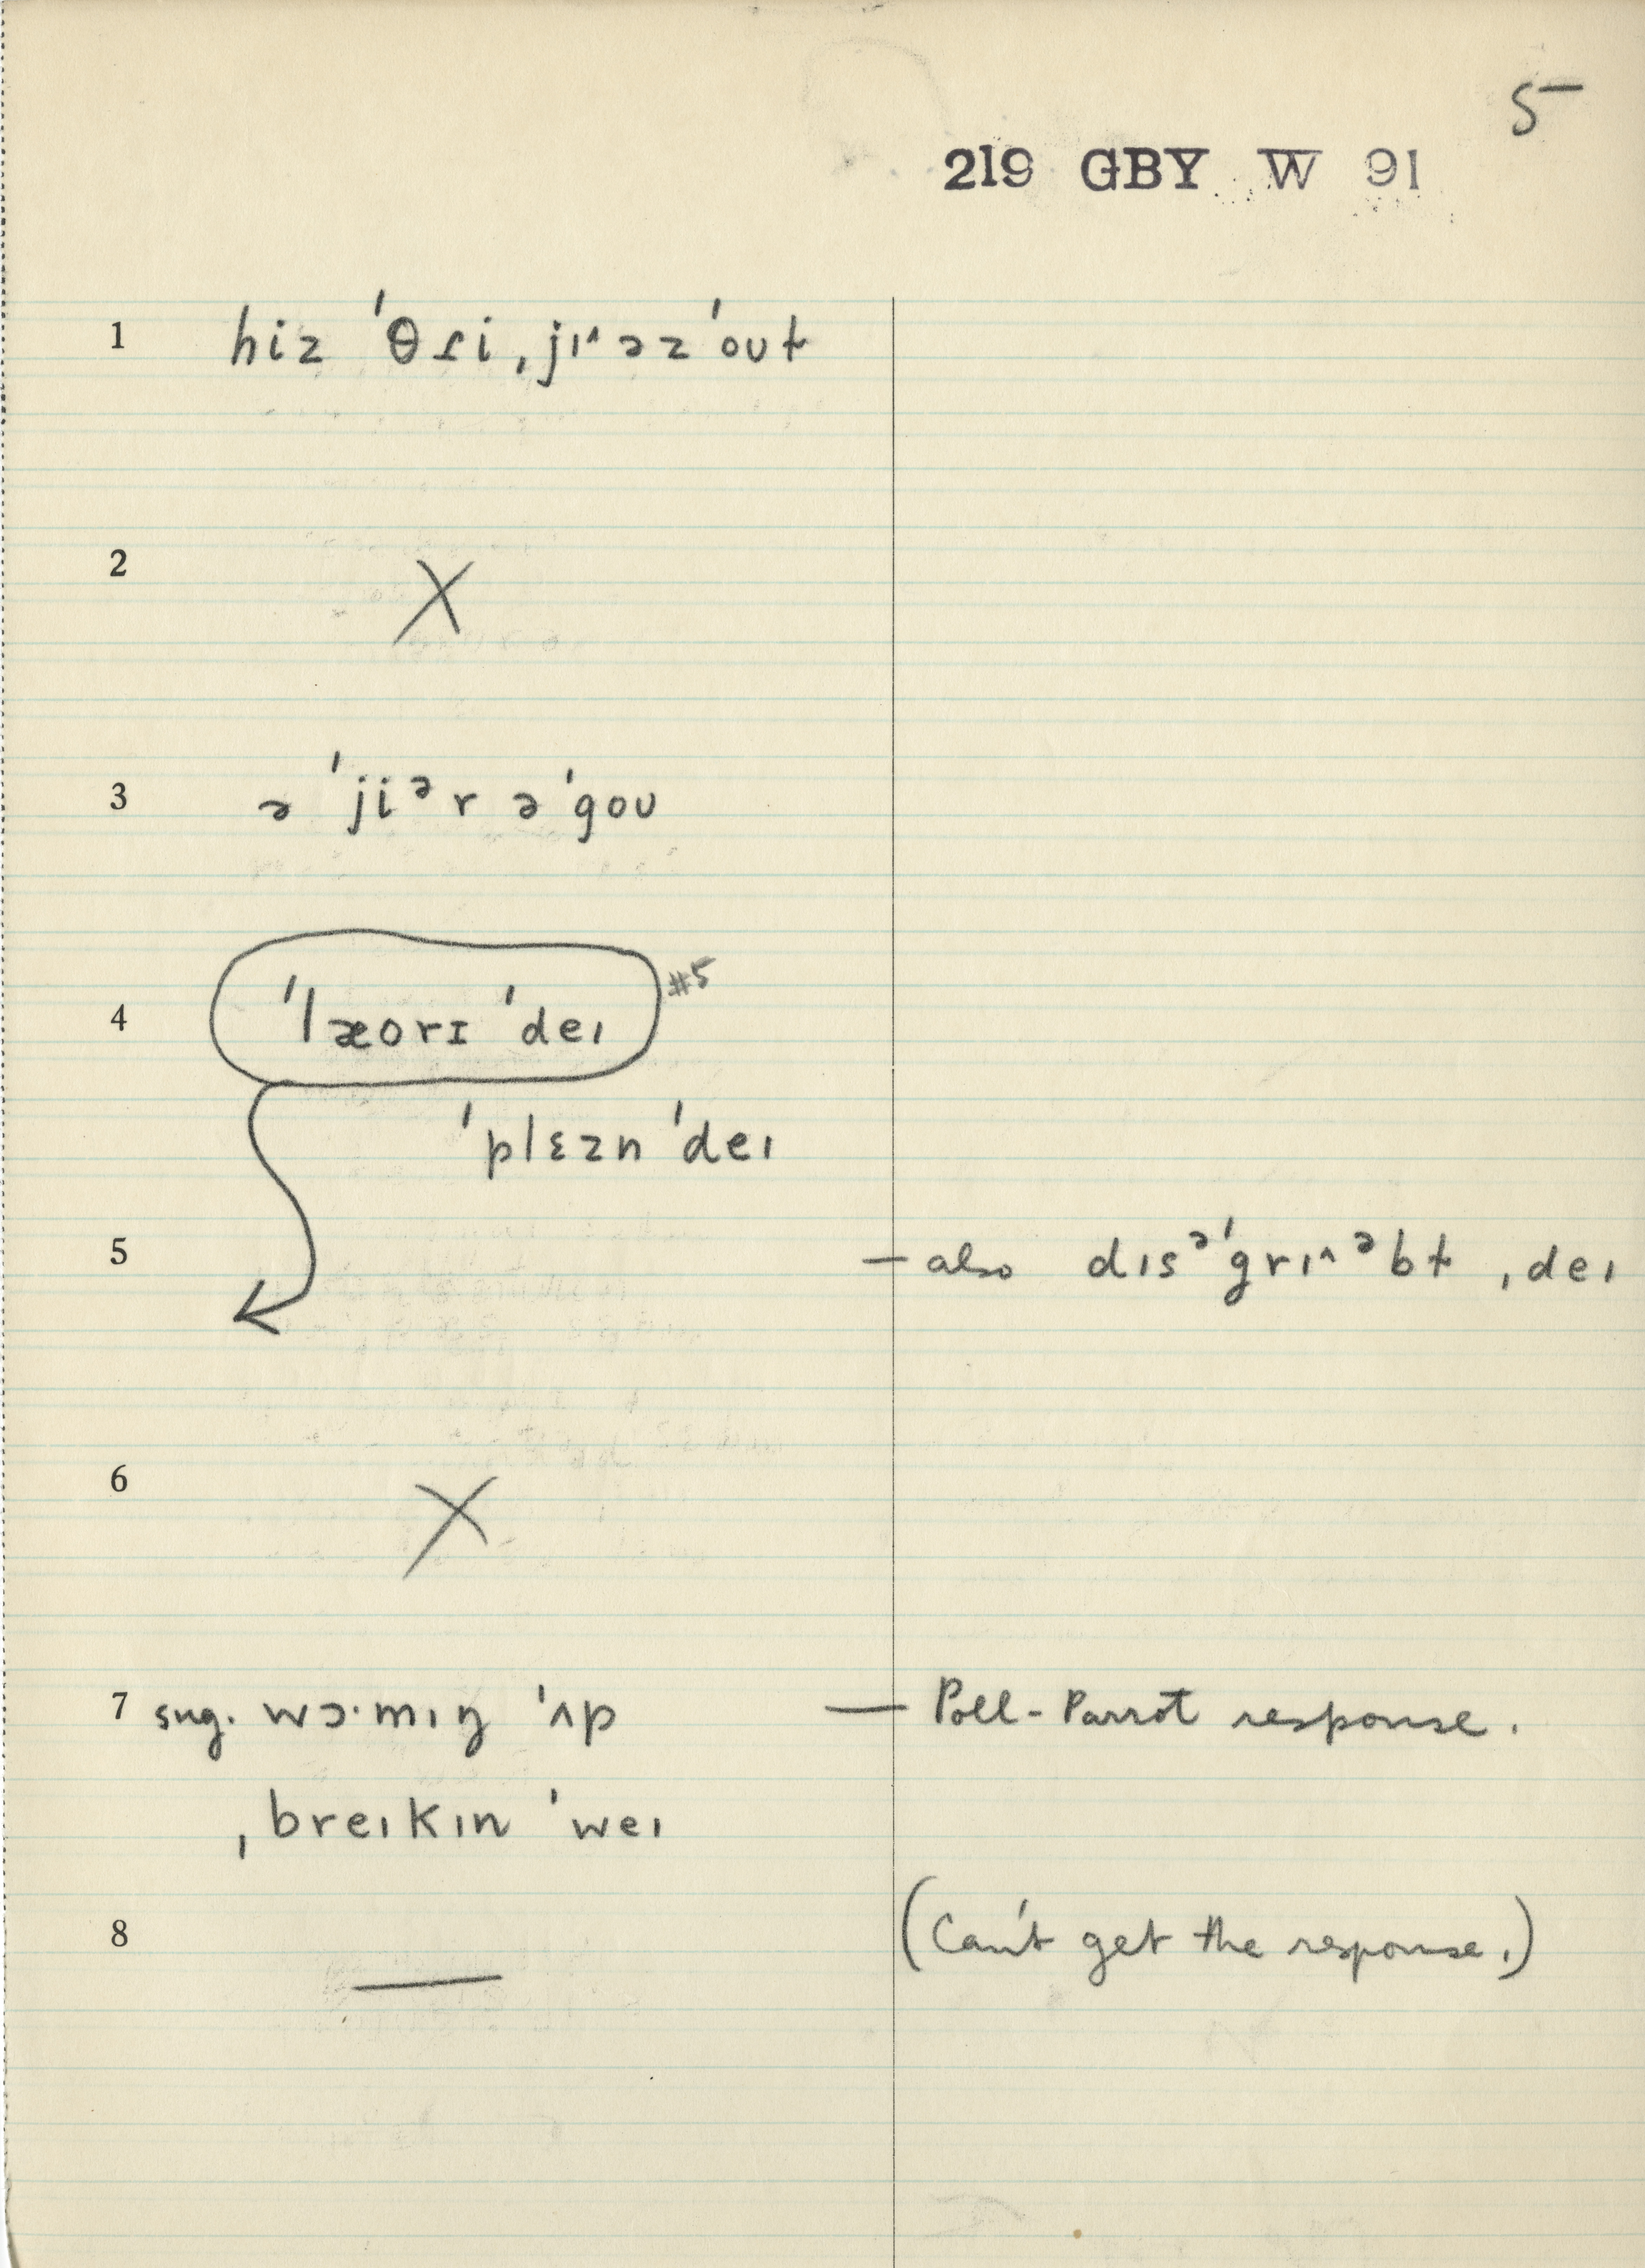 5
219 GBY W 91
1 hiz ˈθɾi ˌjɪ˄əz ˈoʊɫ
2 X
3 ə ˈjiᵊr əˈgoʊ
4 ˈlæorɪ ˈdeɪ #5
ˈplɛzn ˈdeɪ
5 — also dɪsᵊˈgrɪ˄ᵊbɫ ˌdeɪ
6 X
7 sug. wɔ·mɪŋ ˈʌp — Poll-Parrot response.
ˌbreɪkɪn ˈweɪ
8 — (Can't get the response.)